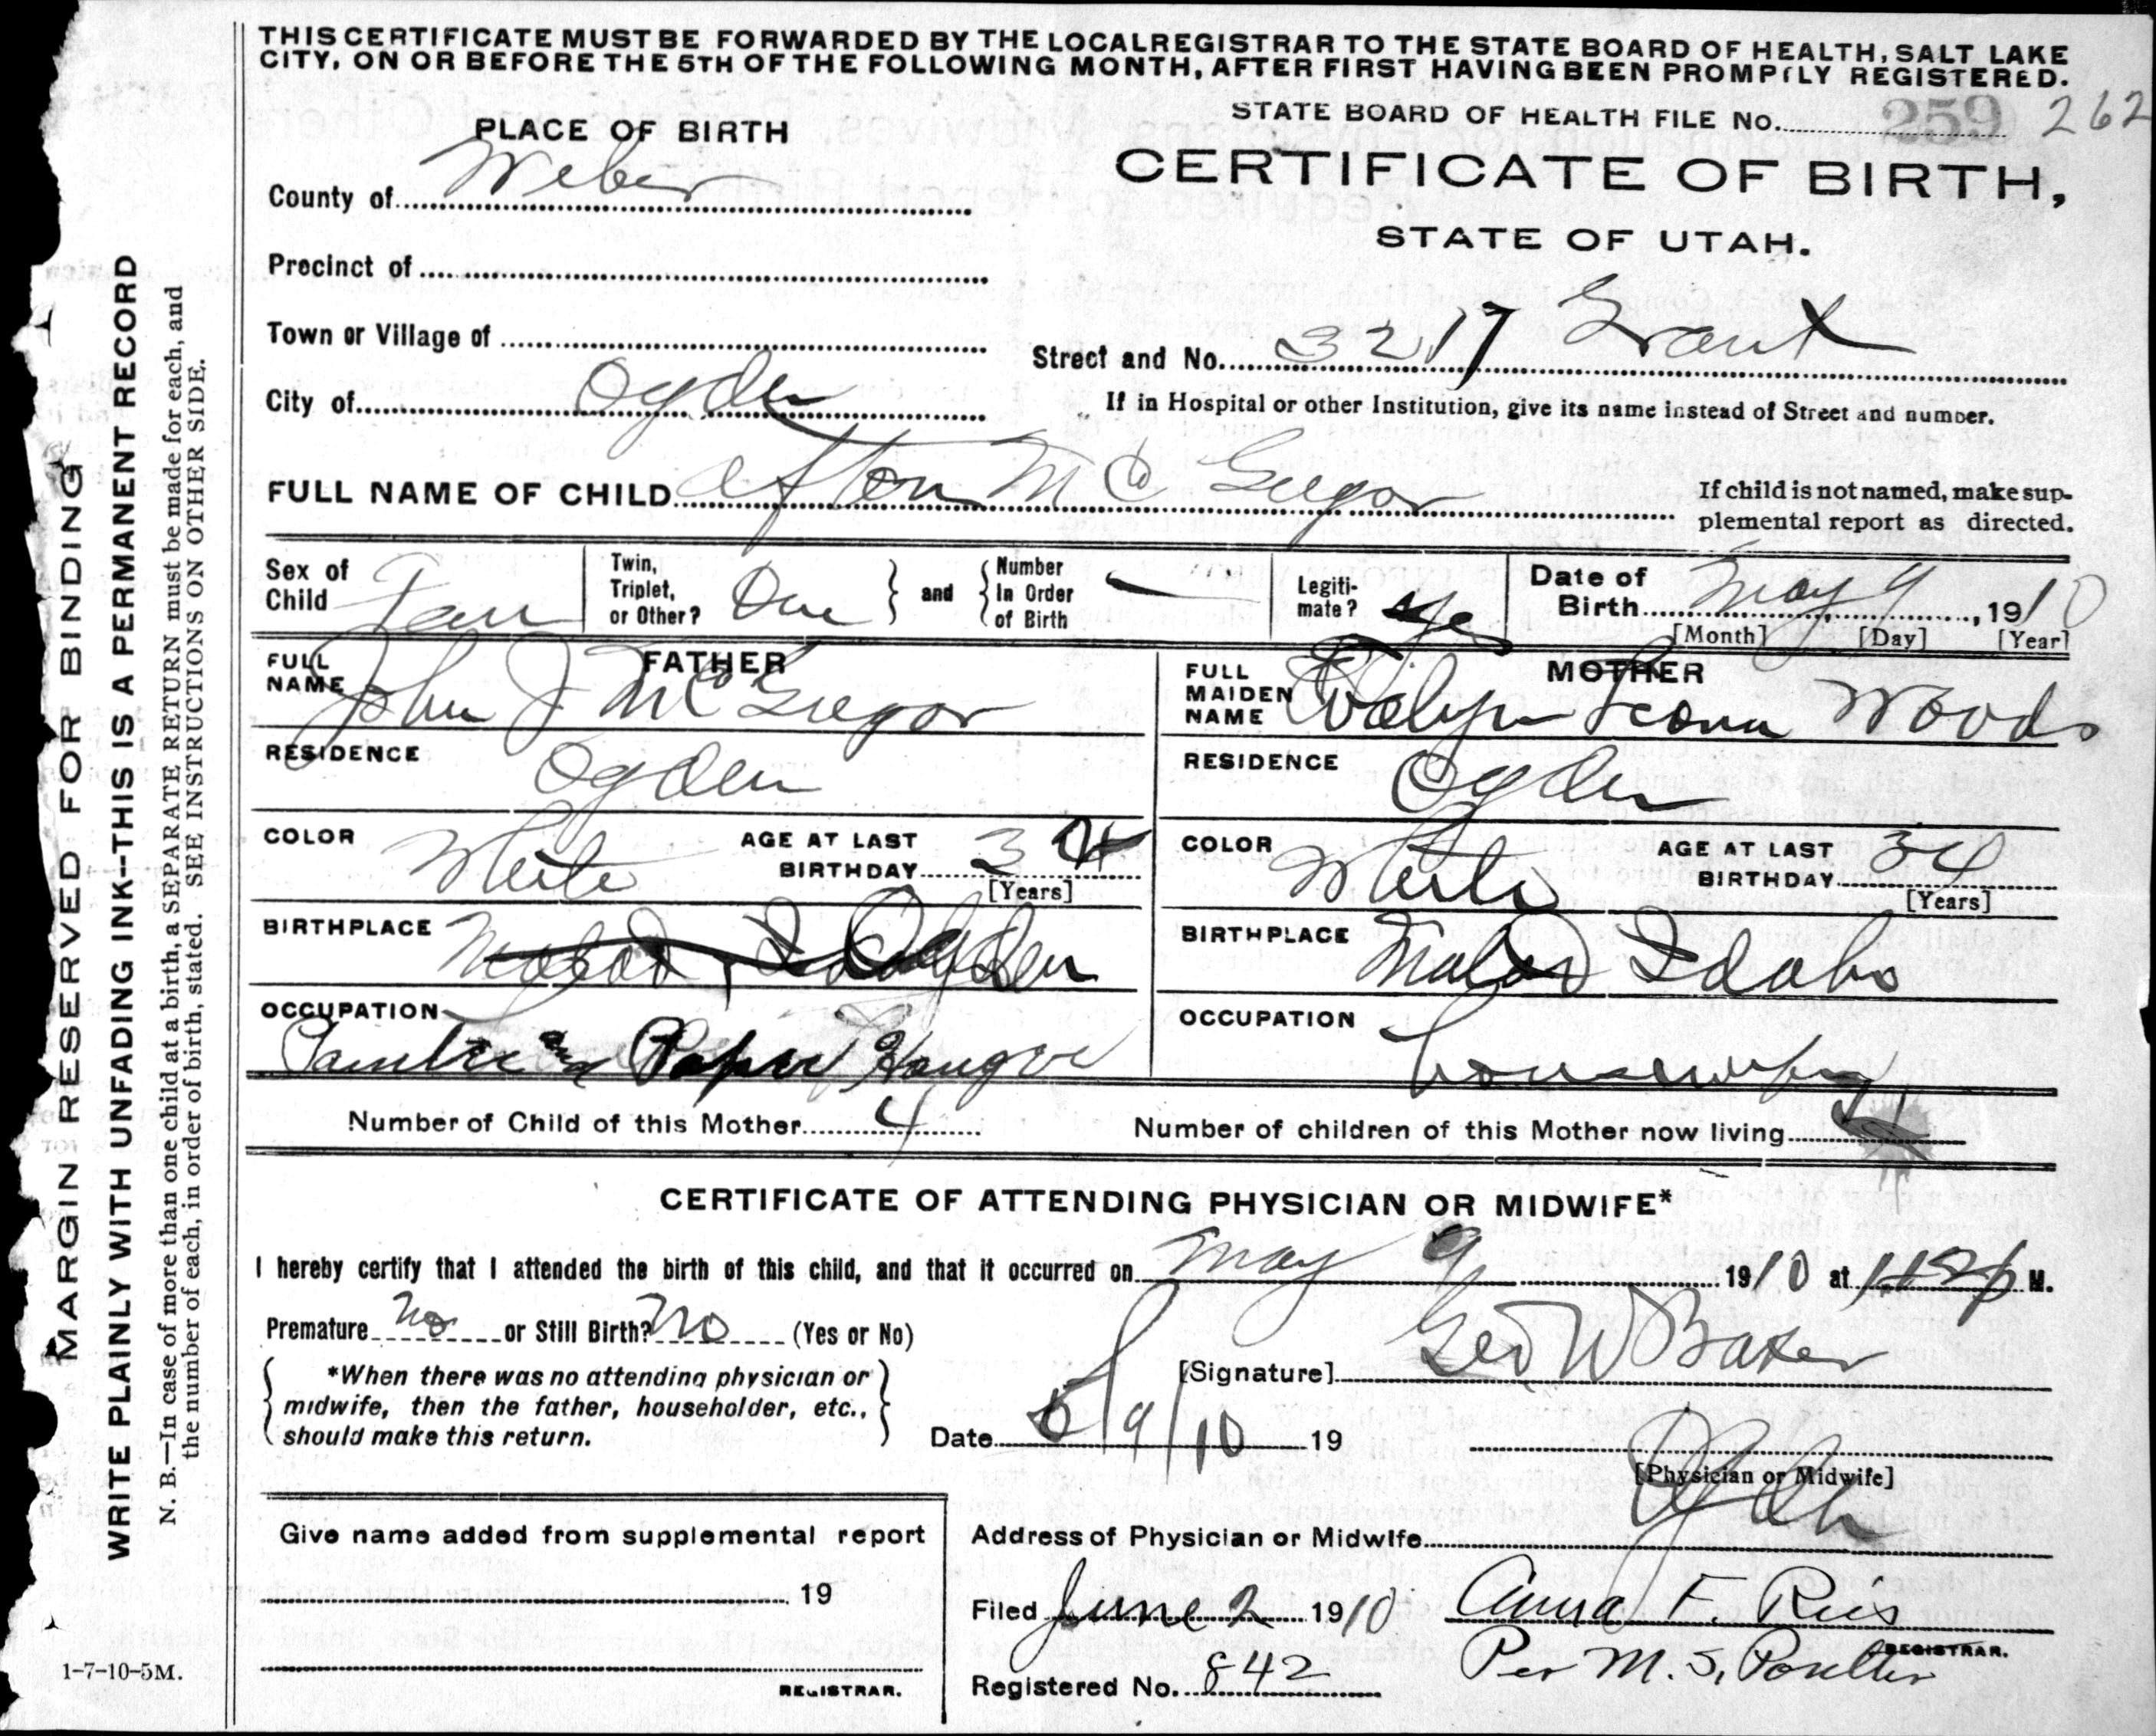 THIS CERTIFICATE MUST BE FORWARDED BY THE LOCAL REGISTRAR TO THE STATE BOARD OF HEALTH, SALT LAKE
CITY, ON OR BEFORE THE 5TH OF THE FOLLOWING MONTH, AFTER FIRST HAVING BEEN PROMPTLY REGISTERED.
STATE BOARD OF HEALTH FILE No. 259 262
PLACE OF BIRTH
CERTIFICATE OF BIRTH,
STATE OF UTAH.
County of Weber
Precinct of
Town or Village of
Street and No. 3217 Grant
City of Ogden
If in Hospital or other Institution, give its name instead of Street and number.
FULL NAME OF CHILD Afton McGregor
If child is not named, make sup-
plemental report as directed.
Sex of
Child Fem
Twin,
Triplet,
or Other? One
and
Number
In Order
of Birth —
Legiti-
mate? Yes
Date of
Birth May 9, 1910
[Month] [Day] [Year]
FATHER
FULL
NAME John J McGregor
RESIDENCE Ogden
COLOR White
AGE AT LAST
BIRTHDAY 34
[Years]
BIRTHPLACE Ogden
OCCUPATION
Painter and Paper Hanger
MOTHER
FULL
MAIDEN
NAME Evelyn Leona Woods
RESIDENCE Ogden
COLOR White
AGE AT LAST
BIRTHDAY 34
[Years]
BIRTHPLACE Malad Idaho
OCCUPATION housewife
Number of Child of this Mother 4
Number of children of this Mother now living
CERTIFICATE OF ATTENDING PHYSICIAN OR MIDWIFE*
I hereby certify that I attended the birth of this child, and that it occurred on May 9 1910 at M.
Premature No or Still Birth? No (Yes or No)
*When there was no attending physician or
midwife, then the father, householder, etc.,
should make this return.
[Signature] Geo W Baker
Date 5/9/10 19
[Physician or Midwife]
Address of Physician or Midwife Ogden
Give name added from supplemental report
19
REGISTRAR.
Filed June 2 1910 Anna F. Ries
REGISTRAR.
Per M. S. Poulter
Registered No. 842
MARGIN RESERVED FOR BINDING
WRITE PLAINLY WITH UNFADING INK--THIS IS A PERMANENT RECORD
N. B.—In case of more than one child at a birth, a SEPARATE RETURN must be made for each, and
the number of each, in order of birth, stated. SEE INSTRUCTIONS ON OTHER SIDE.
1-7-10-5M.